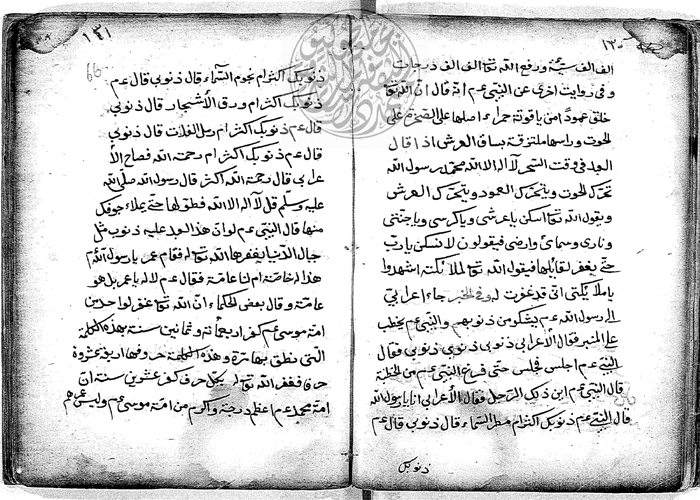 ١٢٠
الف الف سيئة ورفع الله تعا الف الف درجات
وفى روايت اخرى عن النبى عم انه قال ان الله تعا
خلق عمودا من ياقوتة حمراء اصلها على الصخرة على
الحوت وراسها ملتزقة بساق العرش اذا قال
العبد فى وقت السحر لا اله الا الله محمد رسول الله
تحرك الحوت ويتحرك العمود ويتحرك العرش
ويقول الله تعا اسكن يا عرشى ويا كرسى ويا جنتى
ونارى وسمائى وارضى فيقولون لا نسكن يا رب
حتى يغفر لقايلها فيقول الله تعا لملائكته اشهدوا
يا ملائكتى انى قد غفرت له وفى الخبر جاء اعرابى
الى رسول الله عم يشكو من ذنوبهم والنبى عم يخطب
على المنبر فقال الأعرابى ذنوبى ذنوبى ذنوبى فقال
النبى عم اجلس فجلس حتى فرغ النبى عم من الخطبة
قال النبى عم اين ذلك الرجل فقال الأعرابى انا يا رسول الله
قال النبى عم ذنوبك اكثر ام مطر السماء قال ذنوبى قال عم
ذنوبك
١٢١
ذنوبك اكثر ام نجوم السماء قال ذنوبى قال عم
ذنوبك اكثر ام ورق الأشجار قال ذنوبى
قال عم ذنوبك اكثر ام رمل الفلات قال ذنوبى
قال عم ذنوبك اكثر ام رحمة الله فصاح الأ
عرابى قال رحمة الله اكثر قال رسول الله صلى الله
عليه وسلم قل لا اله الا الله فطقها حتى يملاء جوفك
منها قال النبى عم لو ان هذا العبد عليه ذنوب مثل
جبال الدنيا يغفرها الله تعا له فقام عمر يا رسول الله
هذا له خاصة ام لنا عامة فقال عم لا له يا عمر بل هو
عامة وقال بعض الحكماء ان الله تعا غفر لواحد من
امة موسى عم كفر اربعمائة وثمانين سنة بهذه الكلمة
التى نطق بها مرة وهذه الكلمة حروفها اربعة عشروة
حرفا فغفر الله تعا له بكل حرف كفر عشرين سنة ان
امة محمد عم اعظم درجة واكرم من امة موسى عم وليس عمرهم